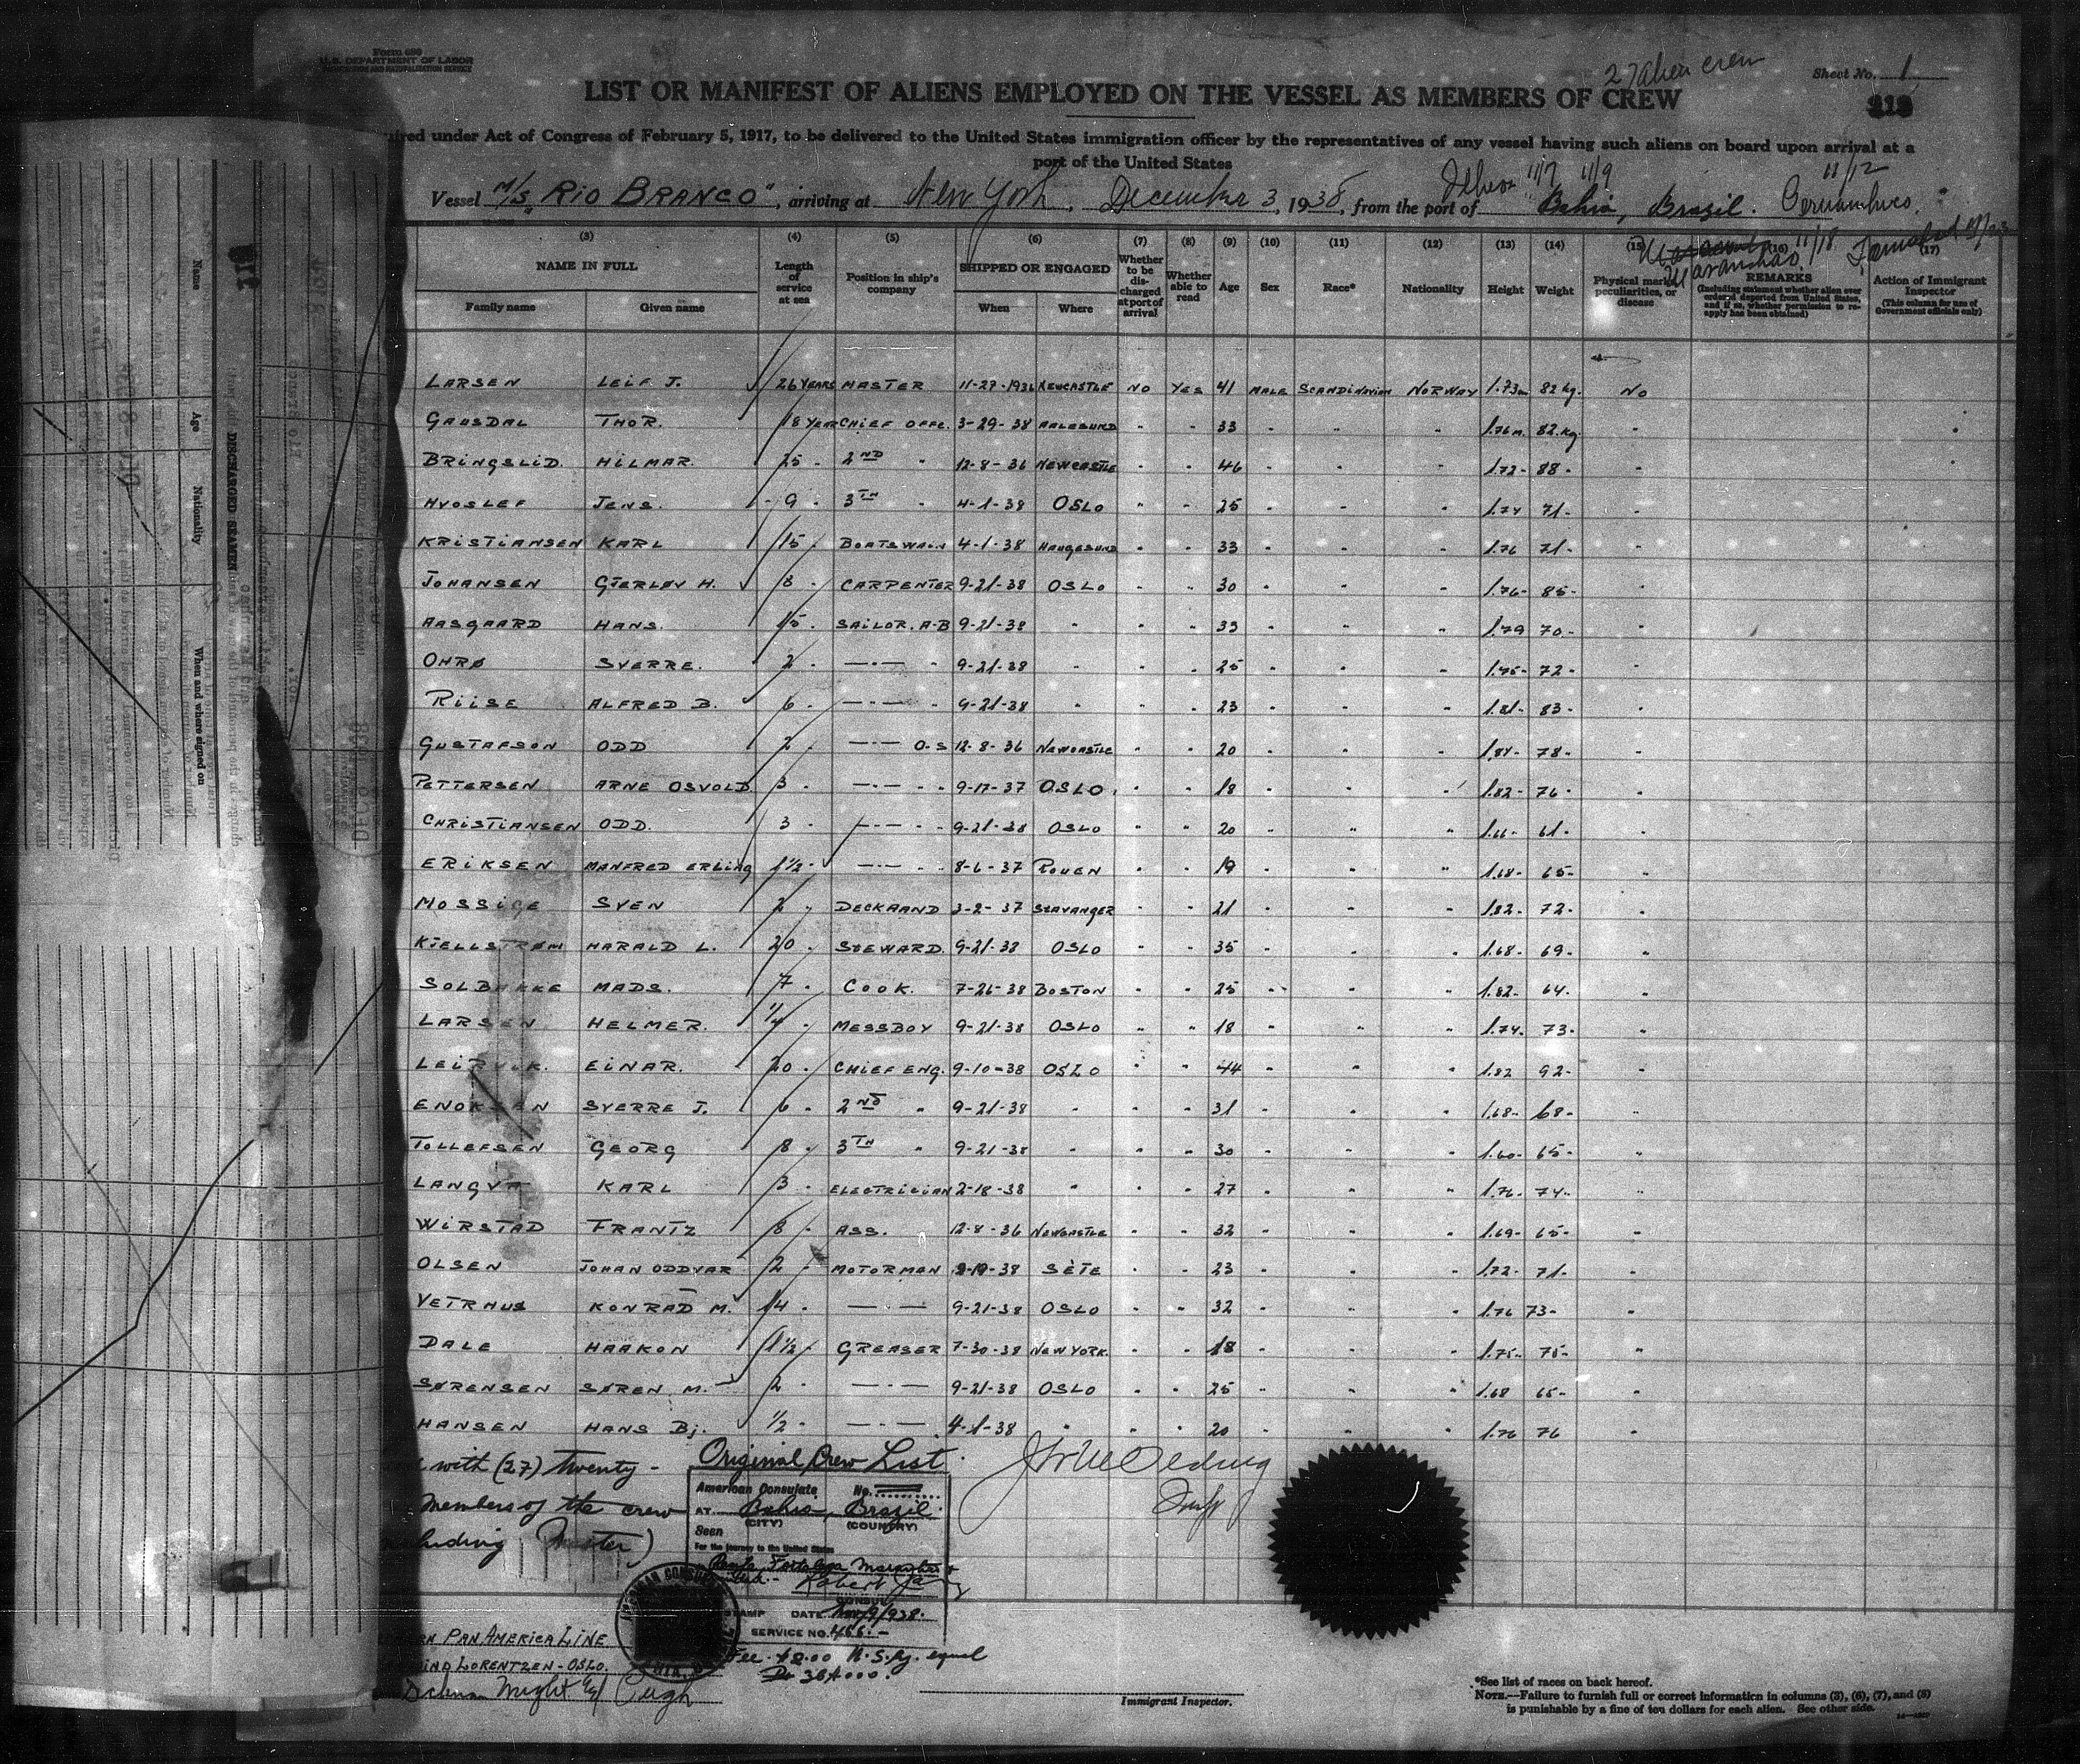 Form 680
U. S. DEPARTMENT OF LABOR
IMMIGRATION AND NATURALIZATION SERVICE
27 alien crew
Sheet No. 1
LIST OR MANIFEST OF ALIENS EMPLOYED ON THE VESSEL AS MEMBERS OF CREW
uired under Act of Congress of February 5, 1917, to be delivered to the United States immigration officer by the representatives of any vessel having such aliens on board upon arrival at a
port of the United States
Ilheos 11/7 11/9 11/12
Vessel M/S "RIO BRANCO", arriving at New York, December 3, 1938, from the port of Bahia, Brazil. Pernambuco
Maranhao 11/18
(3) (4) (5) (6) (7) (8) (9) (10) (11) (12) (13) (14) (15) (16) (17)
NAME IN FULL Length of service at sea Position in ship's company SHIPPED OR ENGAGED Whether to be discharged at port of arrival Whether able to read Age Sex Race* Nationality Height Weight Physical marks, peculiarities, or disease REMARKS (Including statement whether alien ever ordered deported from United States, and if so, whether permission to reapply has been obtained) Action of Immigrant Inspector (This column for use of Government officials only)
Family name Given name When Where
LARSEN LEIF J. 26 YEARS MASTER 11-27-1936 NEWCASTLE NO YES 41 MALE SCANDINAVIAN NORWAY 1.73m 82 kg. NO
GAUSDAL THOR. 18 YEAR CHIEF OFFC. 3-29-38 AALESUND - - 33 - - - 1.76m. 82.kg. -
BRINGSLID. HILMAR. 25 - 2ND - 12-8-36 NEWCASTLE - - 46 - - - 1.72- 88- -
HVOSLEF JENS. - 9 - 3TH - 4-1-38 OSLO - - 25 - - - 1.74 71- -
KRISTIANSEN KARL 15 - BOATSWAIN 4-1-38 HAUGESUND - - 33 - - - 1.76 71- -
JOHANSEN GJERLØV H. 8 - CARPENTER 9-21-38 OSLO - - 30 - - - 1.76- 85- -
AASGAARD HANS. 15 - SAILOR. A-B 9-21-38 - - - 33 - - - 1.79 70- -
OHRØ SVERRE. 2 - —·— - 9-21-38 - - - 25 - - - 72- -
RIISE ALFRED B. 6 - —·— - 9-21-38 - - - 23 - - - 1.81- 83- -
GUSTAFSON ODD 2 - —·— O-S 12-8-36 NEWCASTLE - - 20 - - - 1.84- 78- -
PETTERSEN ARNE OSVOLD 3 - —·— - - 9-17-37 OSLO. - - 18 - - - 1.82- 76- -
CHRISTIANSEN ODD. 3 - —·— - - 9-21-38 OSLO - - 20 - - - 1.66- 61- -
ERIKSEN MANFRED ERLING 1 1/2 - —·— - - 8-6-37 ROUEN - - 19 - - - 1.68- 65- -
MOSSIGE SVEN 2 - DECKHAND 3-2-37 STAVANGER - - 21 - - - 1.82- 72- -
KJELLSTRØM HARALD L. 20 - STEWARD. 9-21-38 OSLO - - 35 - - - 1.68- 69- -
SOLBAKKE MADS. 7 - COOK. 7-26-38 BOSTON - - 25 - - - 1.82- 64- -
LARSEN HELMER. 1/4 - MESSBOY 9-21-38 OSLO - - 18 - - - 1.74- 73- -
LEIRVIK. EINAR. 20 - CHIEF ENG. 9-10-38 OSLO - - 44 - - - 1.82 92- -
ENOKSEN SVERRE J. 6 - 2ND - 9-21-38 - - - 31 - - - 1.68- 68- -
TOLLEFSEN GEORG 8 - 3TH - 9-21-38 - - - 30 - - - 1.60- 65- -
LANGVA KARL 3 - ELECTRICIAN 2-18-38 - - - 27 - - - 1.76- 74- -
WIRSTAD FRANTZ 8 - ASS. 12-8-36 NEWCASTLE - - 32 - - - 1.69- 65- -
OLSEN JOHAN ODDVAR 2 - MOTORMAN 38 SÈTE - - 23 - - - 1.72- 71- -
VETRHUS KONRAD M. 14 - —·— 9-21-38 OSLO - - 32 - - - 1.76 73- -
DALE HAAKON 1 1/2 - GREASER 7-30-38 NEW YORK. - - 18 - - - 1.75- 75- -
SØRENSEN SØREN M. 2 - —·— 9-21-38 OSLO - - 25 - - - 1.68 65- -
HANSEN HANS Bj. 1/2 - —·— 4-1-38 - - - 20 - - - 1.76 76 -
with (27) Twenty-
members of the crew
Master)
Original Crew List.
American Consulate, No.
AT Bahia, Brazil.
(CITY) (COUNTRY)
Seen
For the journey to the United States
Robert
CONSUL
STAMP DATE Nov/9/938.
SERVICE NO. 466.-
Fee $2.00 U.S.Cy. equal
PAN AMERICA LINE
LORENTZEN - OSLO.
Immigrant Inspector.
*See list of races on back hereof.
NOTE.—Failure to furnish full or correct information in columns (3), (6), (7), and (8)
is punishable by a fine of ten dollars for each alien. See other side.
DISCHARGED SEAMEN
Name
Age
Nationality
When and where signed on